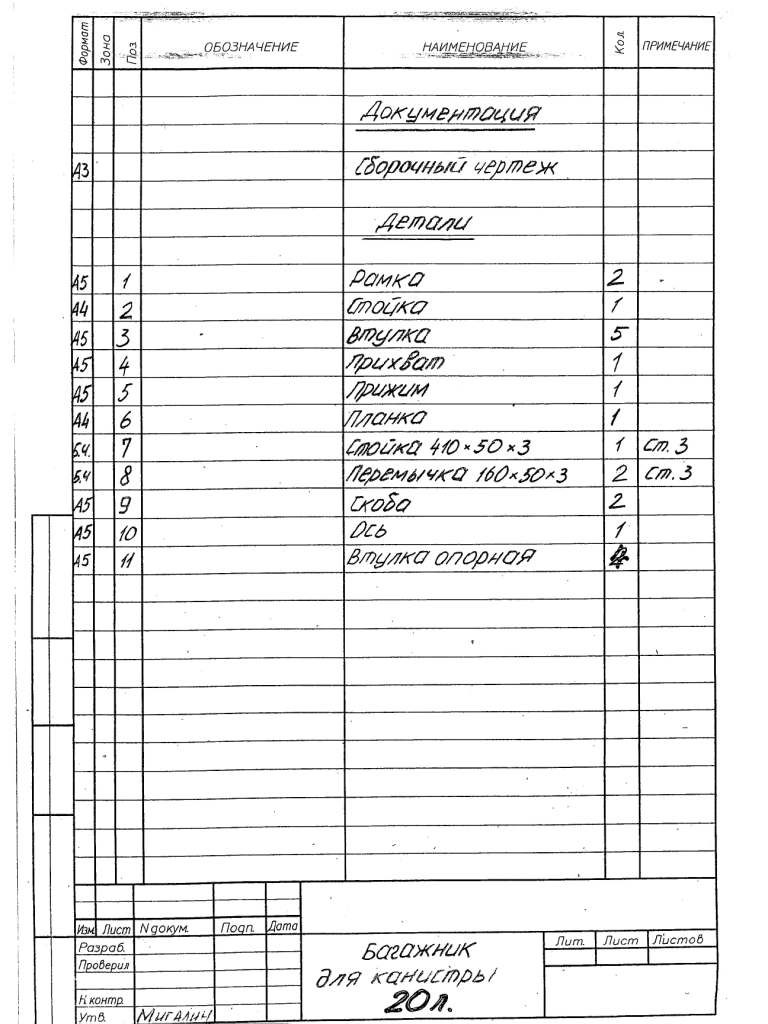 Формат Зона Поз. ОБОЗНАЧЕНИЕ НАИМЕНОВАНИЕ Кол. ПРИМЕЧАНИЕ
Документация
А3 Сборочный чертеж
Детали
А5 1 Рамка 2
А4 2 Стойка 1
А5 3 Втулка 5
А5 4 Прихват 1
А5 5 Прижим 1
А4 6 Планка 1
Б.Ч. 7 Стойка 410×50×3 1 Ст. 3
Б.Ч 8 Перемычка 160×50×3 2 Ст. 3
А5 9 Скоба 2
А5 10 Ось 1
А5 11 Втулка опорная
Изм. Лист N докум. Подп. Дата
Разраб.
Проверил
Н.контр.
Утв. Мигалич
Багажник
для канистры
20л.
Лит. Лист Листов